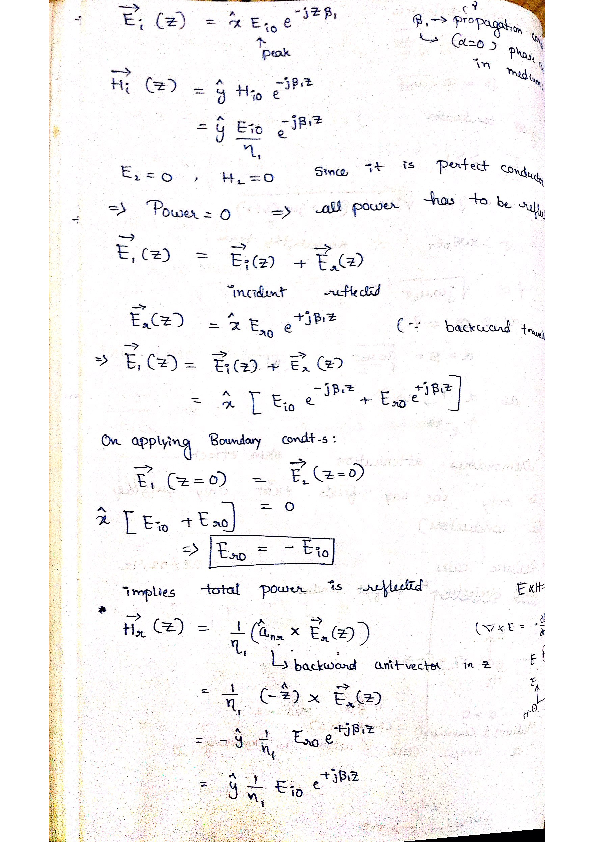 E⃗ᵢ (z) = x̂ E_io e^{-jzβ₁}
↑ peak
β₁ → propagation
↳ (α=0) phase
in medium
H⃗ᵢ (z) = ŷ H_io e^{-jβ₁z}
= ŷ E_io/η₁ e^{-jβ₁z}
E₂ = 0 , H₂ = 0 Since it is perfect
⇒ Power = 0 ⇒ all power has to be
E⃗₁ (z) = E⃗ᵢ(z) + E⃗ᵣ(z)
incident reflected
E⃗ᵣ(z) = x̂ E_ro e^{+jβ₁z} (∵ backward
⇒ E⃗₁ (z) = E⃗ᵢ(z) + E⃗ᵣ (z)
= x̂ [ E_io e^{-jβ₁z} + E_ro e^{+jβ₁z} ]
On applying Boundary condt-s :
E⃗₁ (z=0) = E⃗₂ (z=0)
x̂ [ E_io + E_ro ] = 0
⇒ E_ro = - E_io
implies total power is reflected
E×H=
* H⃗ᵣ (z) = 1/η₁ (â_nr × E⃗ᵣ(z))
(∇×E =
↳ backward unit vector in z
= 1/η₁ (-ẑ) × E⃗ᵣ(z)
= - ŷ 1/η₁ E_ro e^{+jβ₁z}
= ŷ 1/η₁ E_io e^{+jβ₁z}